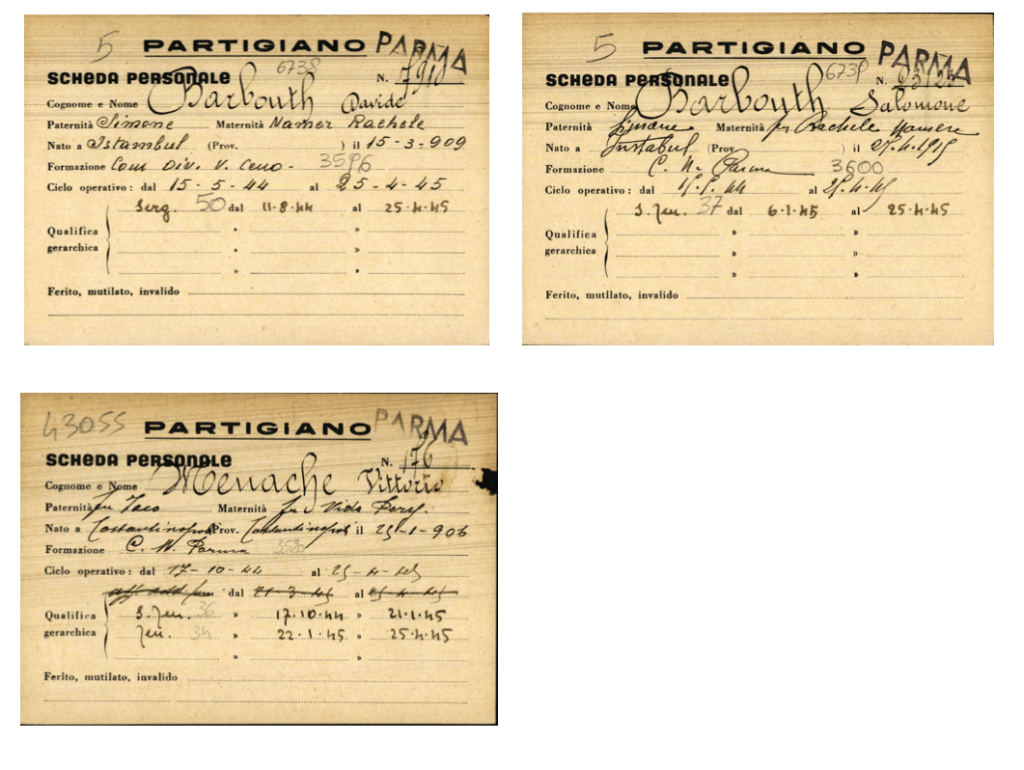 5 PARTIGIANO PARMA
6738
SCHEDA PERSONALE N. 7910
Cognome e Nome Barbouth Davide
Paternità Simone Maternità Namer Rachele
Nato a Istambul (Prov. ) il 15-3-909
Formazione Com Div. V. Ceno - 3596
Ciclo operativo: dal 15-5-44 al 25-4-45
Serg. 50 dal 11-8-44 al 25-4-45
Qualifica " "
gerarchica " "
" "
Ferito, mutilato, invalido
5 PARTIGIANO PARMA
6739
SCHEDA PERSONALE N.
Cognome e Nome Barbouth Salomone
Paternità Simone Maternità fu Rachele
Nato a Instabul (Prov. ) il
Formazione C. N. Parma 3600
Ciclo operativo: dal al 25-4-45
S. Ten. 37 dal 6-1-45 al 25-4-45
Qualifica " "
gerarchica " "
" "
Ferito, mutilato, invalido
43055 PARTIGIANO PARMA
SCHEDA PERSONALE N. 176
Cognome e Nome Menache Vittorio
Paternità fu Maternità fu Vida
Nato a Costantinopoli (Prov. Costantinopoli il 25-1-906
Formazione C. N. Parma
Ciclo operativo: dal 17-10-44 al 25-4-45
dal 21-3-45 al 25-4-45
Qualifica S. Ten. 36 " 17.10.44 " 21.1.45
gerarchica Ten. 34 " 22.1.45 " 25.4.45
" "
Ferito, mutilato, invalido